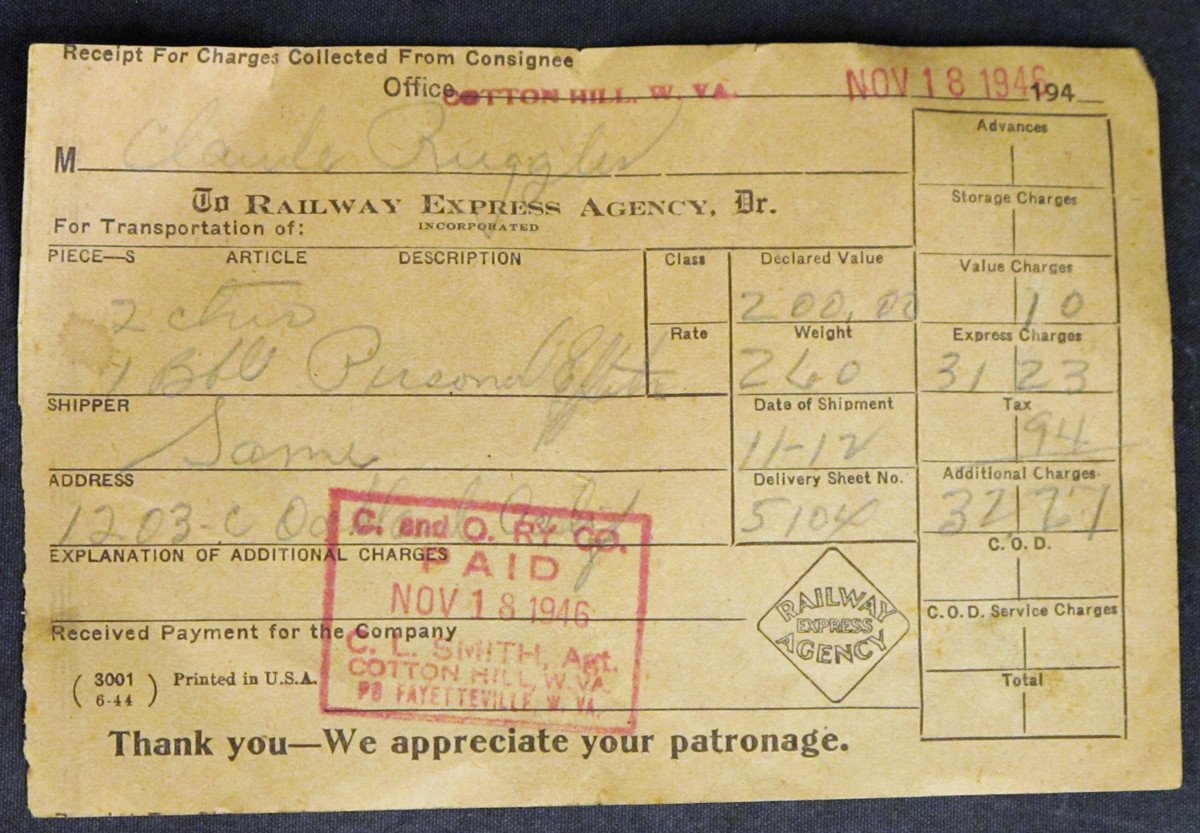 Receipt For Charges Collected From Consignee
Office COTTON HILL, W. VA. NOV 18 1946 194
M Claude Ruggles
To RAILWAY EXPRESS AGENCY, Dr.
INCORPORATED
For Transportation of:
PIECE—S ARTICLE DESCRIPTION
2 ctns
1 Bbl Personal Effects
SHIPPER
Same
ADDRESS
1203-C Oakland Calif
EXPLANATION OF ADDITIONAL CHARGES
Class
Rate
Declared Value
200.00
Weight
260
Date of Shipment
11-12
Delivery Sheet No.
5104
Advances
Storage Charges
Value Charges
10
Express Charges
31 23
Tax
94
Additional Charges
32 27
C. O. D.
C.O.D. Service Charges
Total
C. and O. RY CO.
PAID
NOV 18 1946
C. L. SMITH, Agt.
COTTON HILL, W. VA
PO FAYETTEVILLE, W. VA.
RAILWAY
EXPRESS
AGENCY
Received Payment for the Company
( 3001 6-44 ) Printed in U.S.A.
Thank you—We appreciate your patronage.